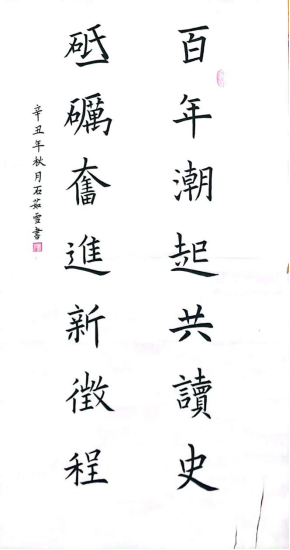 百年潮起共讀史
砥礪奮進新徵程
辛丑年秋月石茹雪書